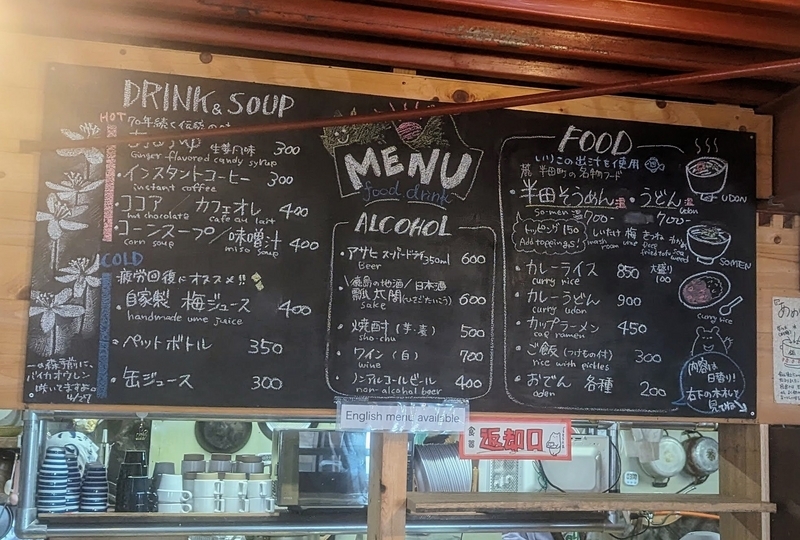 DRINK & SOUP
HOT
生姜風味 300
Ginger flavored candy syrup
・インスタントコーヒー 300
instant coffee
・ココア / カフェオレ 400
hot chocolate / cafe au lait
・コーンスープ / 味噌汁 400
corn soup miso soup
COLD
疲労回復にオススメ!!
・自家製 梅ジュース 400
handmade ume juice
・ペットボトル 350
・缶ジュース 300
バイカオウレン
咲いてます
4/27
MENU
food drink
ALCOHOL
・アサヒ スーパードライ 350ml 600
Beer
徳島の地酒 / 日本酒
太閤 600
sake
・焼酎 (芋・麦) 500
sho-chu
・ワイン (白) 700
wine
・ノンアルコールビール 400
non-alcohol beer
FOOD
いりこの出汁を使用
半田町の名物フード
・半田そうめん 温 ・うどん 温
so-men 700 udon 700
トッピング 150
Add toppings!
しいたけ 梅 きつね わかめ
・カレーライス 850 大盛り 100
curry rice
・カレーうどん 900
curry udon
・カップラーメン 450
cup ramen
・ご飯 (つけもの付) 300
rice with pickles
・おでん 各種 200
oden
UDON
SOMEN
curry rice
内容は
日替り!
右下の木札して
見てね
English menu available
食器 返却口